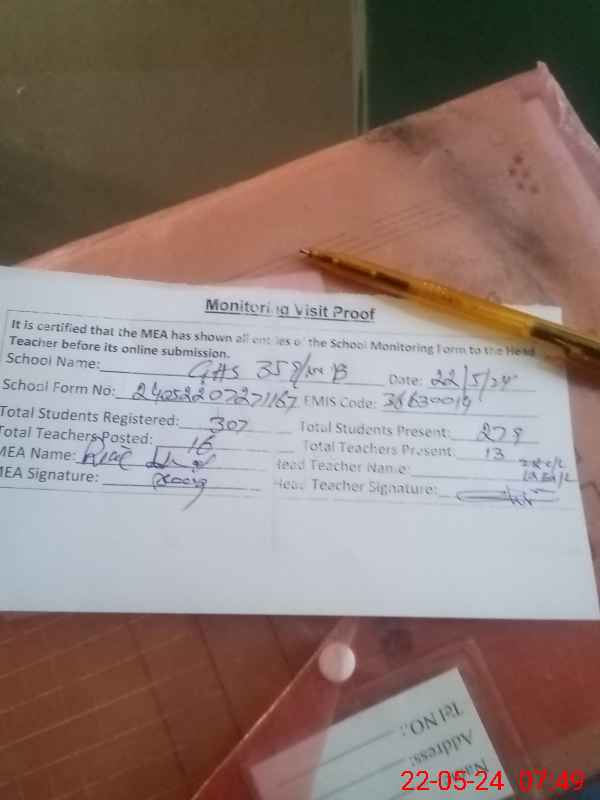 Monitoring Visit Proof
It is certified that the MEA has shown all entries of the School Monitoring Form to the Head
Teacher before its online submission.
School Name: GHS 358/WB Date: 22/5/24
School Form No: 24052207271167 EMIS Code: 36630019
Total Students Registered: 307 Total Students Present: 279
Total Teachers Posted: 16 Total Teachers Present: 13
MEA Name: Head Teacher Name
MEA Signature: Head Teacher Signature:
Tel NO.:
Address:
22-05-24 07:49